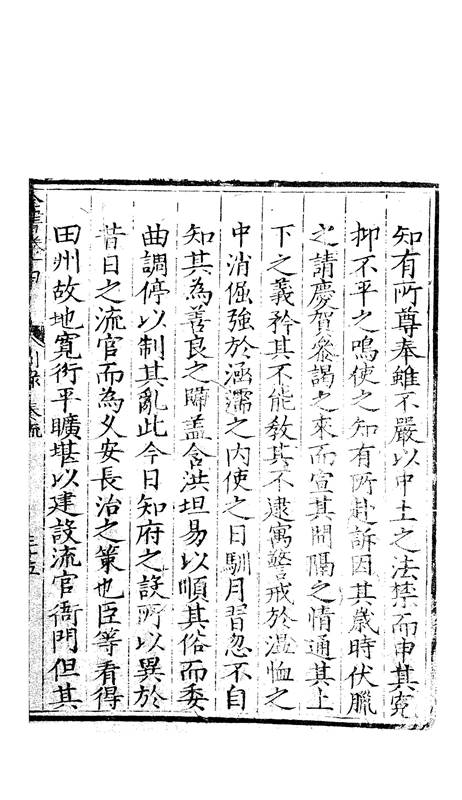 知有所尊奉雖不嚴以中土之法禁而申其寃
抑不平之鳴使之知有所赴訴因其歲時伏臘
之請慶賀參謁之來而宣其間隔之情通其上
下之義矜其不能教其不逮寓警戒於温恤之
中消倔強於涵濡之内使之日馴月習忽不自
知其為善良之歸盖含洪坦易以順其俗而委
曲調停以制其亂此今日知府之設所以異於
昔日之流官而為久安長治之策也臣等看得
田州故地寛衍平曠堪以建設流官衙門但其
全書卷十四 別録 奏疏 三十五